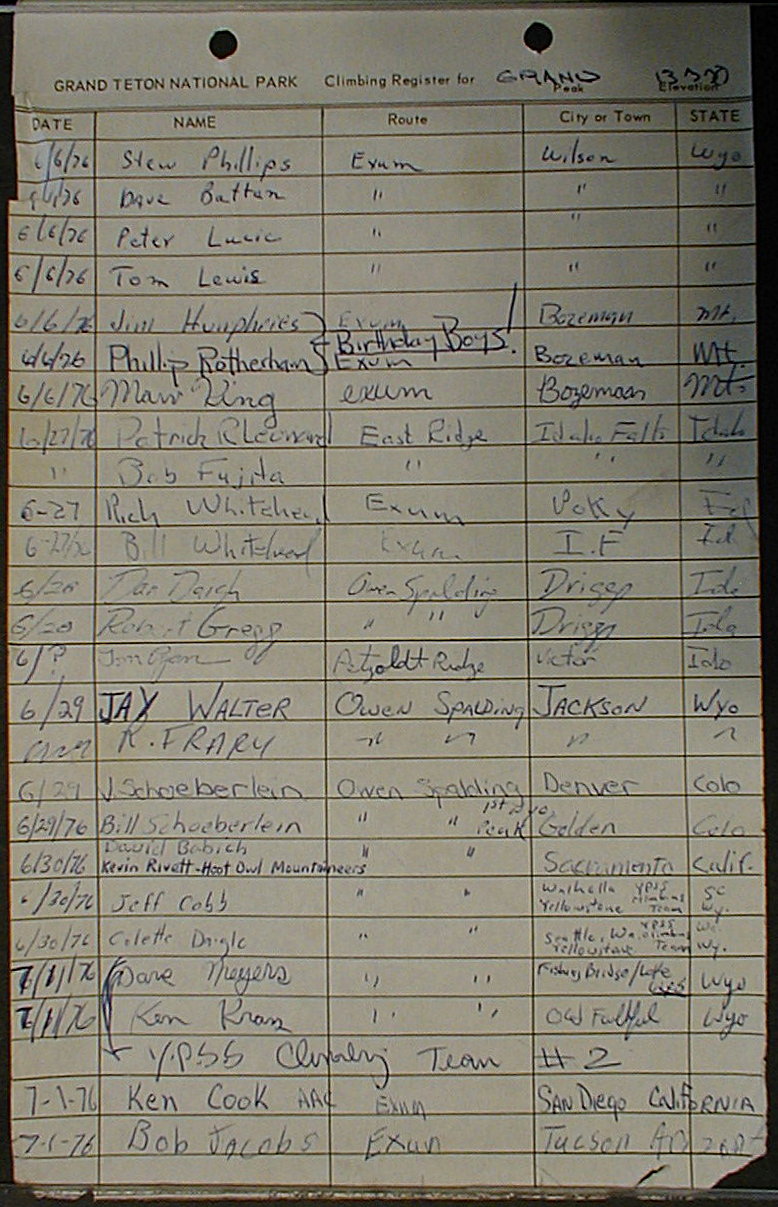 GRAND TETON NATIONAL PARK Climbing Register for GRAND 13770
Peak Elevation
DATE NAME Route City or Town STATE
6/6/76 Stew Phillips Exum Wilson Wyo
Dave " " "
6/6/76 Peter " " "
6/6/76 Tom Lewis " " "
6/6/76 Jim Humphries } Exum Bozeman Mt.
Birthday Boys!
6/6/76 Phillip Rotherham } Exum Bozeman Mt.
6/6/76 King exum Bozeman Mt.
6/27/76 Patrick R East Ridge Idaho Falls Idaho
" Bob Fujita " " "
6-27 Rich Whitehead Exum Poky
6-27/76 Bill Whitehead Exum I.F Id
6/28 Owen Spalding Driggs Ida
6/28 Gregg " " Driggs Ida
6/? Petzoldt Ridge Victor Idao
6/29 JAY WALTER OWEN SPALDING JACKSON Wyo
R. FRARY " " " "
6/29 J. Schoeberlein Owen Spalding Denver Colo
1st
6/29/76 Bill Schoeberlein " " Peak Golden Colo
David Babich
6/30/76 Kevin Rivett-Hoot Owl Mountaineers " " Sacramento Calif.
6/30/76 Jeff Cobb " " Walhalla YPSS SC
Yellowstone Climbing Team Wy.
6/30/76 Colette Daigle " " Seattle, Wa. YPSS Climbing
Yellowstone Team Wy.
7/1/76 Dave Meyers " " Fishing Bridge/Lake Wyo
7/1/76 Ken " " Old Faithful Wyo
Y.P.S.S Climbing Team #2
7-1-76 Ken Cook AAC Exum SAN Diego CALIFORNIA
7-1-76 Bob Jacobs Exum Tucson Arizona